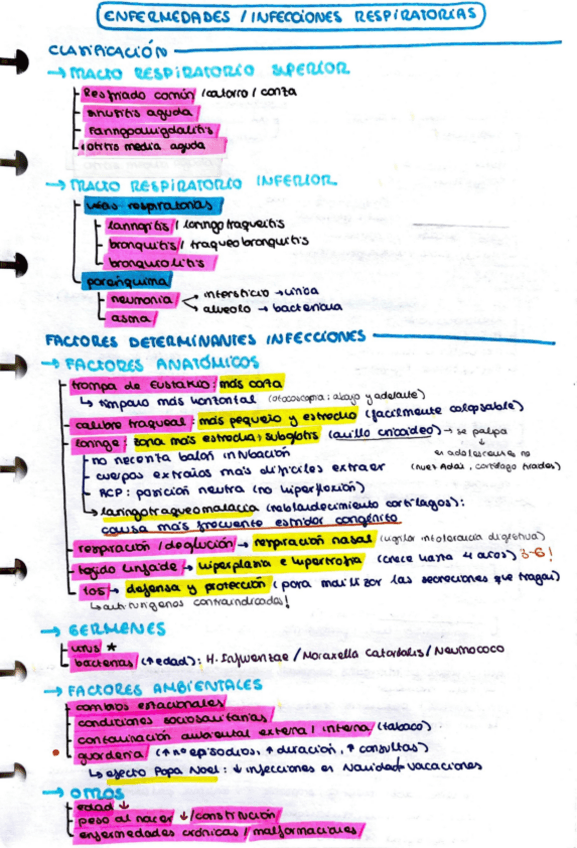 ENFERMEDADES / INFECCIONES RESPIRATORIAS
CLASIFICACIÓN
→ TRACTO RESPIRATORIO SUPERIOR
Resfriado común / catarro / coriza
sinusitis aguda
Faringoamigdalitis
otitis media aguda
→ TRACTO RESPIRATORIO INFERIOR
vías respiratorias
laringitis / laringotraqueitis
bronquitis / traqueobronquitis
bronquiolitis
parénquima
neumonia
intersticio → vírica
alveolo → bacteriana
asma
FACTORES DETERMINANTES INFECCIONES
→ FACTORES ANATÓMICOS
trompa de Eustaquio: más corta
↳ tímpano más horizontal (otoscopia: abajo y adelante)
calibre traqueal: más pequeño y estrecho (facilmente colapsable)
laringe: zona más estrecha: subglotis (anillo cricoideo) → se palpa
↓
en adolescentes no
(nuez Adán, cartílago tiroides)
no necesita balón intubación
cuerpos extraños más difíciles extraer
RCP: posición neutra (no hiperflexión)
laringotraqueomalacia (reblandecimiento cartílagos):
causa más frecuente estridor congénito
respiración / deglución → respiración nasal (vigilar intolerancia digestiva)
tejido linfoide → hiperplasia e hipertrofia (crece hasta 4 años) 3-6!
tos → defensa y protección (para movilizar las secreciones que tragan)
↳ antitusígenos contraindicados!
→ GÉRMENES
virus *
bacterias (↑edad): H. Influenzae / Moraxella Catarralis / Neumococo
→ FACTORES AMBIENTALES
cambios estacionales
condiciones sociosanitarias
contaminación ambiental externa / interna (tabaco)
guardería (↑ nº episodios, ↑ duración, ↑ consultas)
↳ efecto Papa Noel: ↓ infecciones en Navidad + vacaciones
→ OTROS
edad ↓
peso al nacer ↓ / constitución
enfermedades crónicas / malformaciones